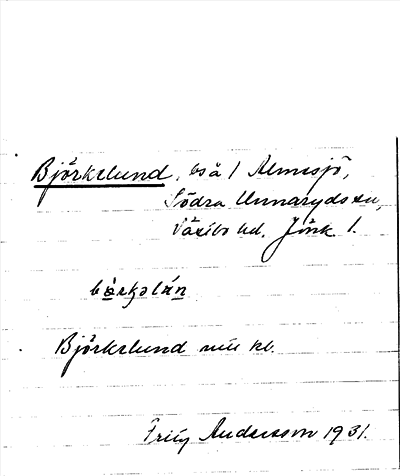 Björkelund, bså / Almesjö,
Södra Unnaryds sn,
Västbo hd. Jönk l.
Björkelund nuv kb.
Fritz Andersson 1931.